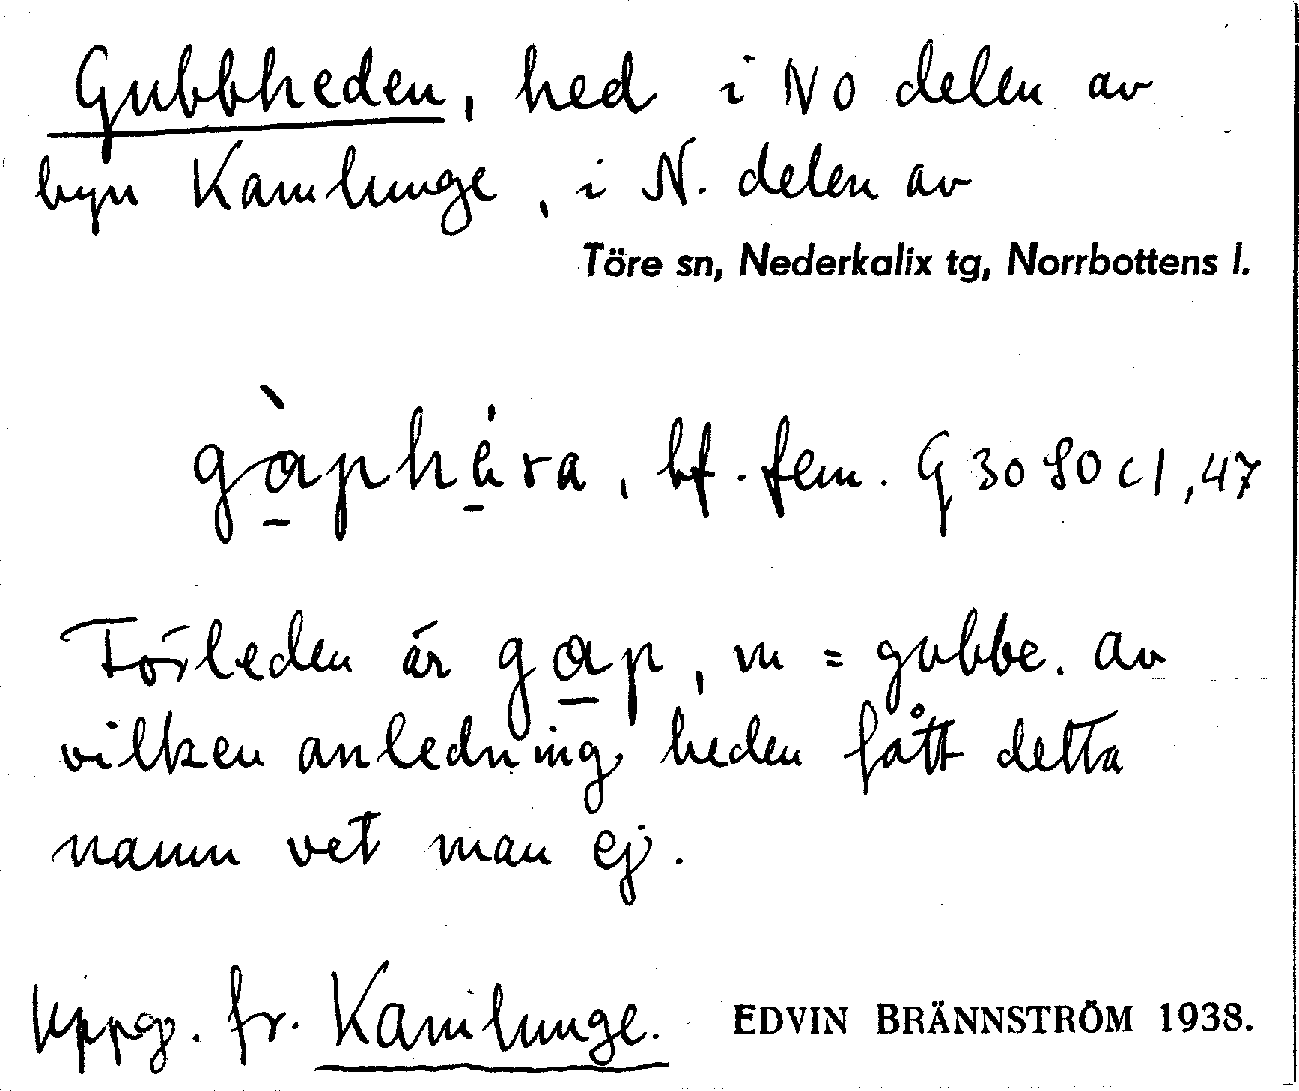 Gubbheden, hed i NO delen av
byn Kamlunge, i N. delen av
Töre sn, Nederkalix tg, Norrbottens l.
gàp̱hèra, bf. fem. G 3080 c1, 47
Förleden är ga̱p, m = gubbe. Av
vilken anledning heden fått detta
namn vet man ej.
Uppg. fr. Kamlunge. EDVIN BRÄNNSTRÖM 1938.